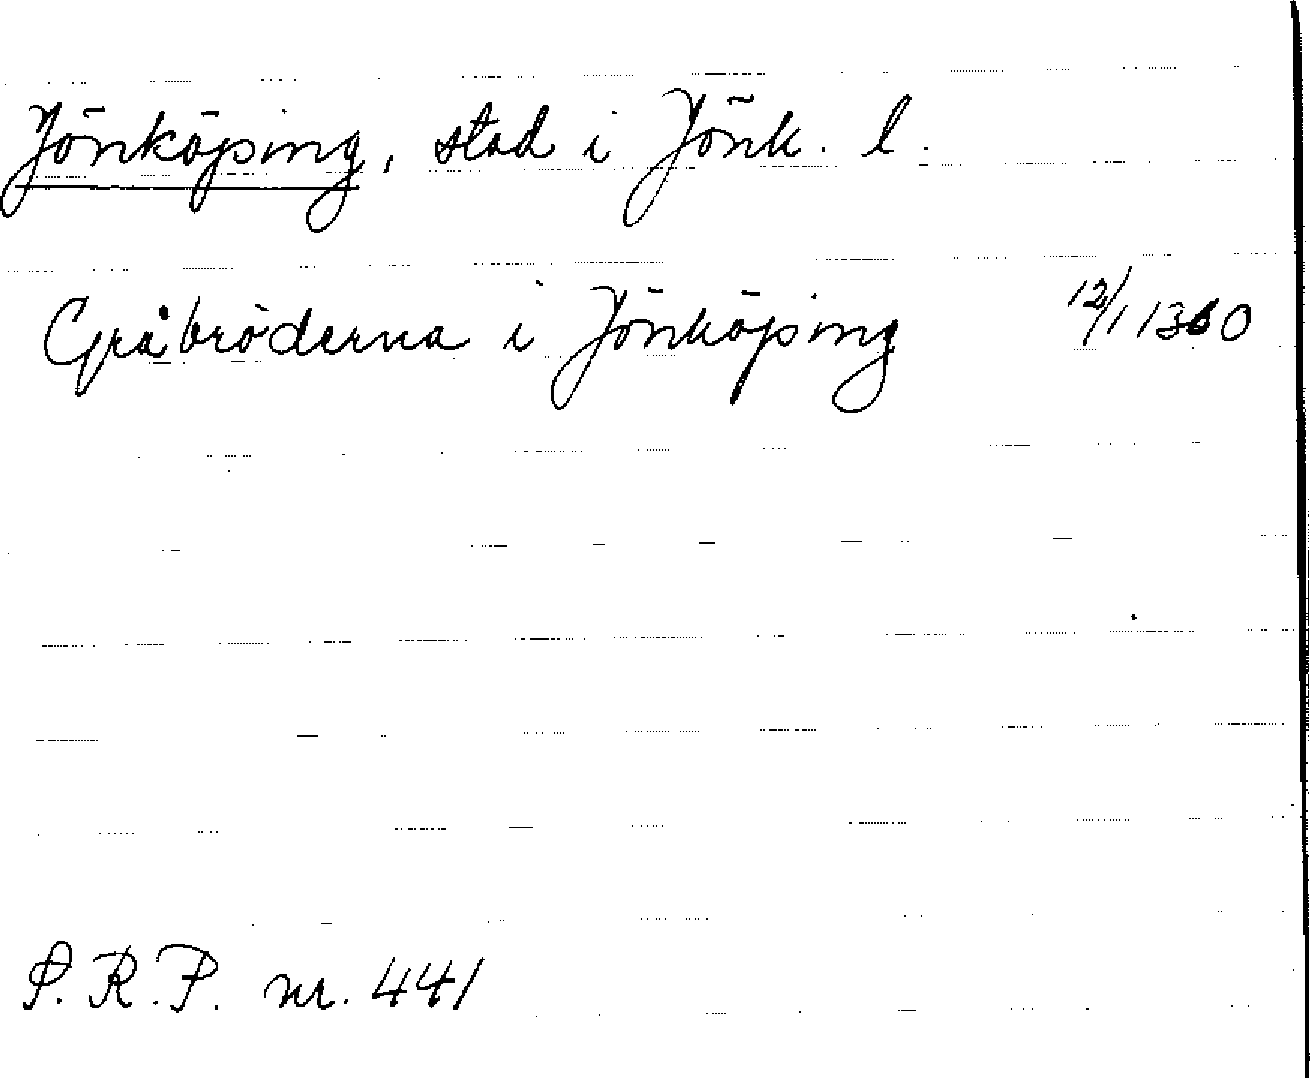 Jönköping, stad i Jönk. l.
Gråbröderna i Jönköping 12/1 1360
P. R. P. nr. 441